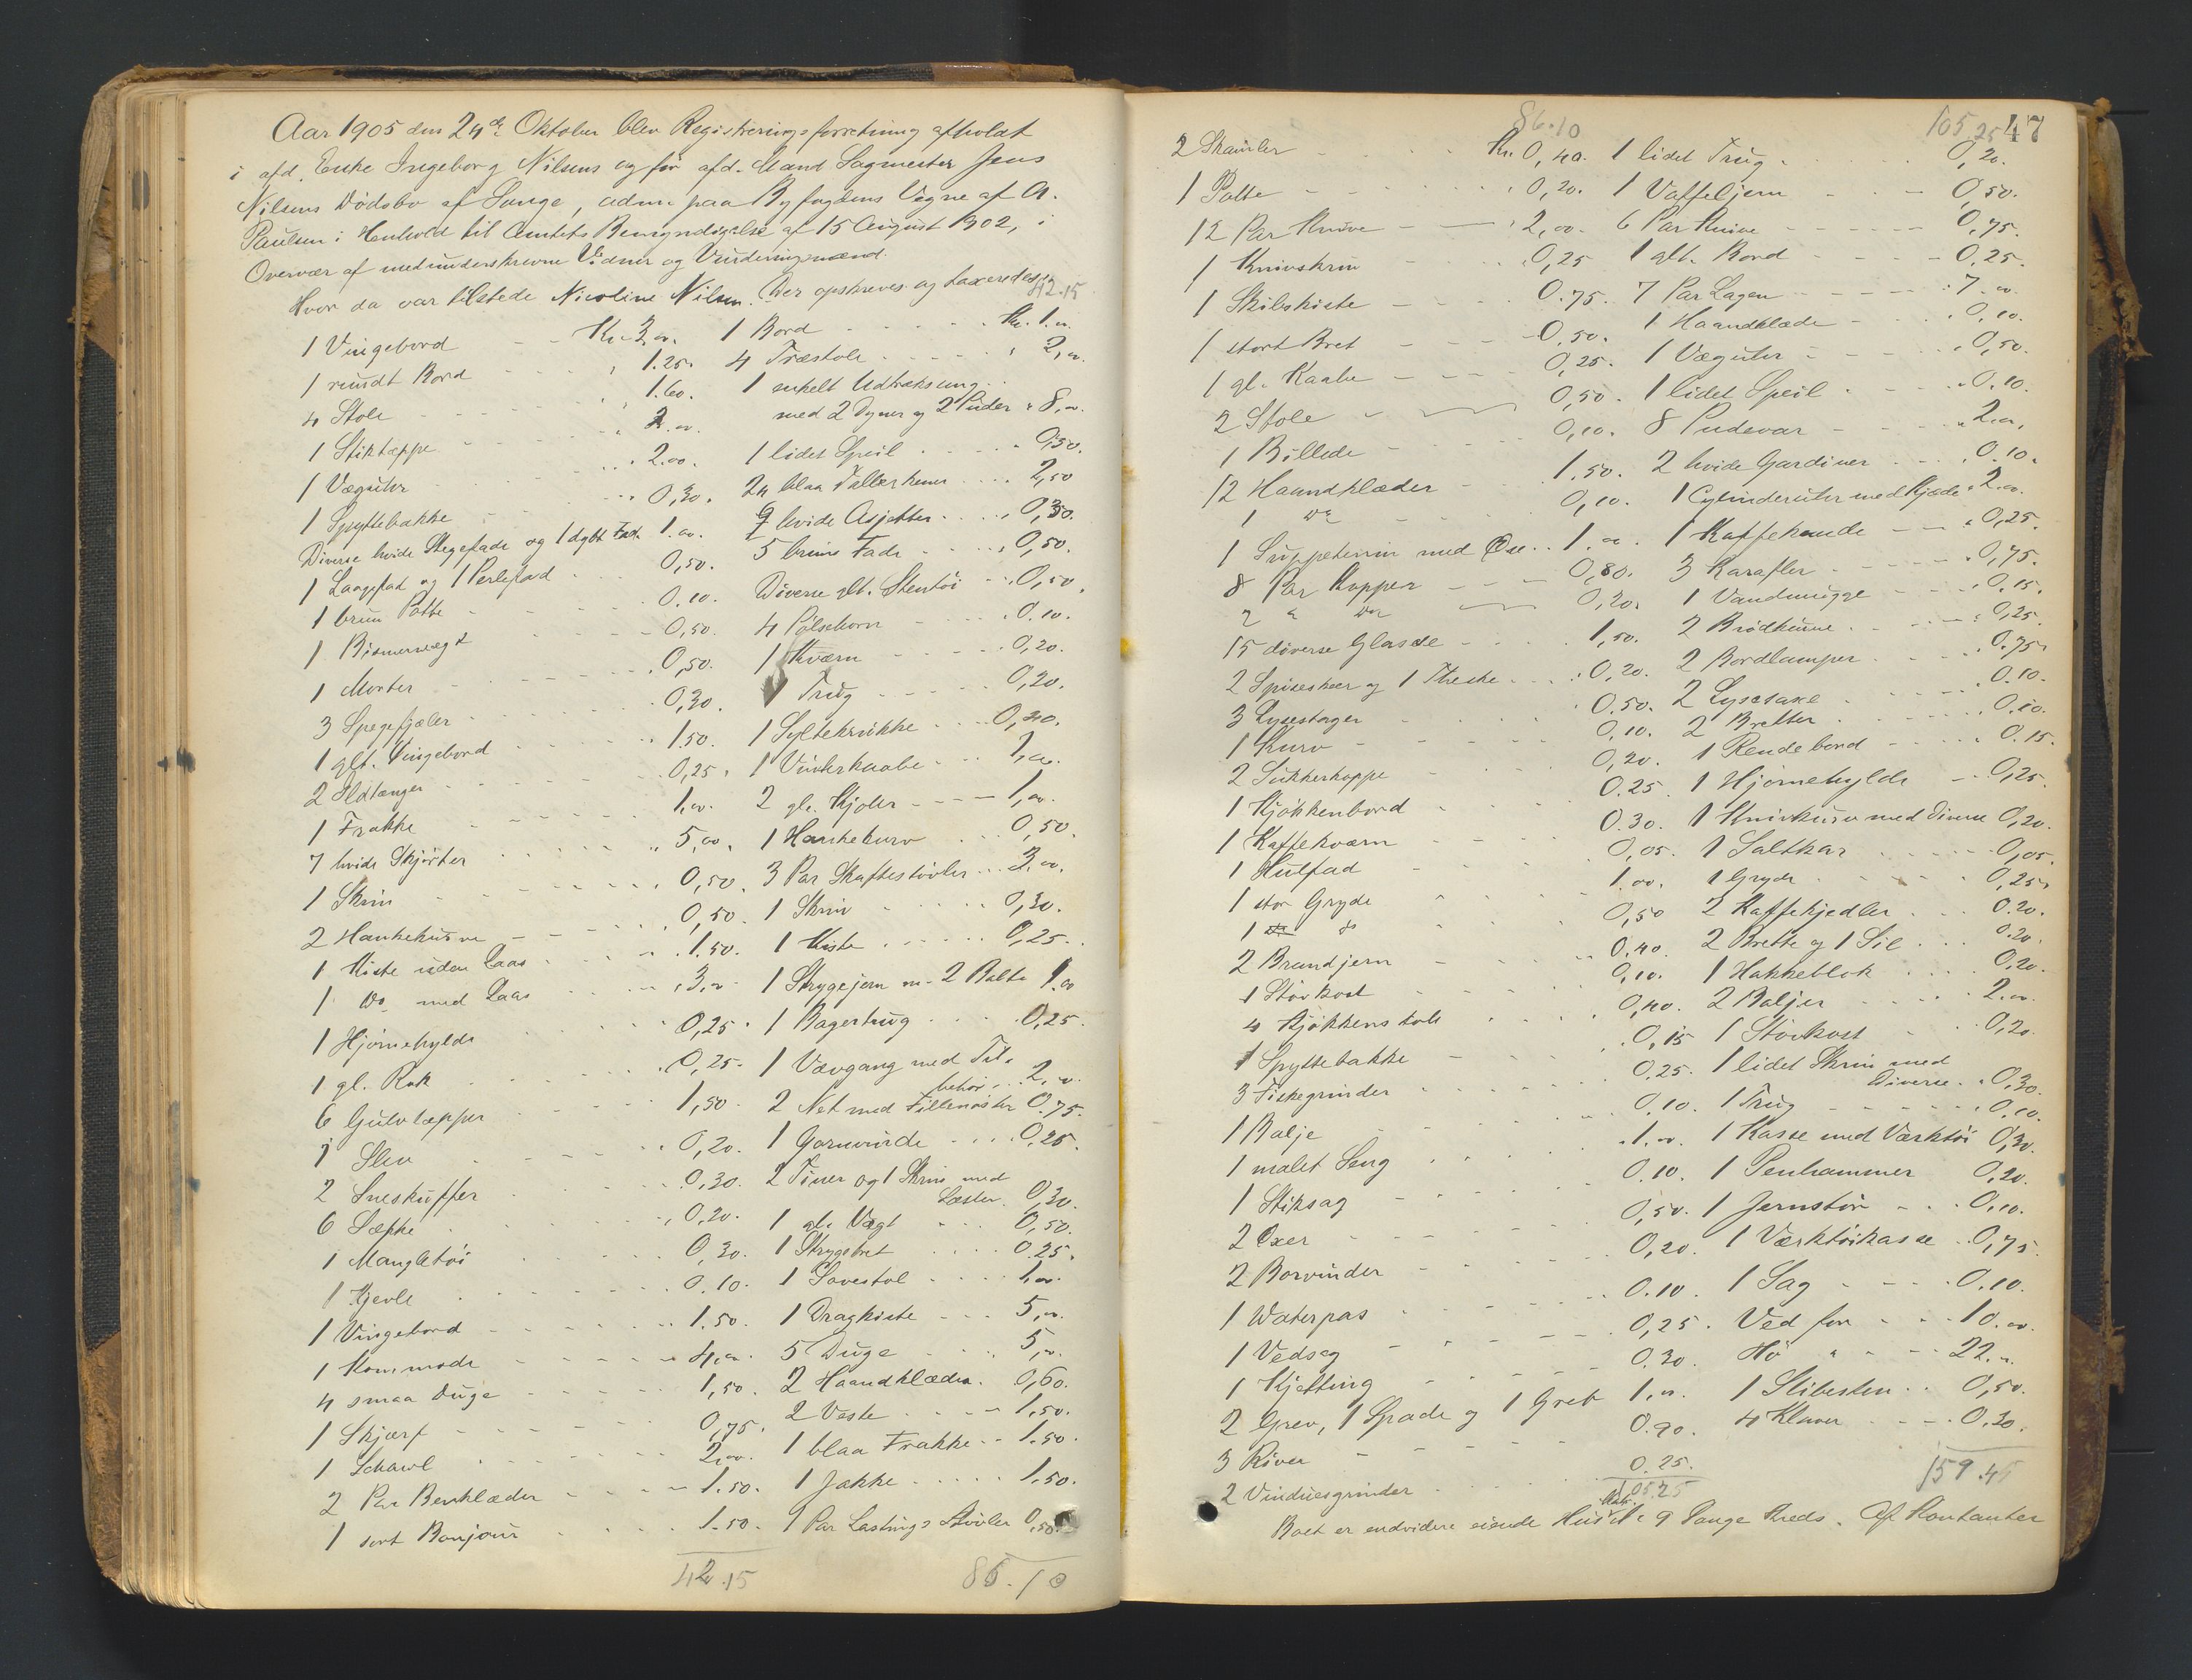 Aar 1905 den 24de Oktober blev Registreringsforretning afholdt
i afd. Enke Ingeborg Nilsens og før afd. Mand Sagmester Jens
Nilsens Dødsbo af Lange, adm. paa Byfogdens Vegne af A.
Paulsen i Henhold til Amtets Bemyndigelse af 15 August 1902, i
Overvær af medunderskrevne Vidner og Vurderingsmænd.
Hvor da var tilstede Nicoline Nilsen. Der opskreves og taxeredes:
42.15
1 Vingebord Kr. 3,00.
1 rundt Bord 1.25.
4 Stole 1.60.
1 Stiktæppe 2.00.
1 Væguhr 2.00.
1 Spyttebakke 0,30.
Diverse hvide Stegefade og 1 dybt Fad. 1.00.
1 Laagfad og 1 Perlefad 0,50.
1 brun Potte 0.10.
1 Bismervægt 0,50.
1 Morter 0,50.
3 Spegefjæler 0,30.
1 glt. Vingebord 1.50.
2 Ildtænger 0,25.
1 Frakke 1,00.
7 hvide Skjørter 5,00.
1 Skrin 0,50.
2 Hankekurve 0,50.
1 Kiste uden Laas 1.50.
1 do. med Laas 3,00
1 Hjørnehylde 0,25.
1 gl. Rok 0,25.
6 Gulvtæpper 1,50.
1 Slev 0,20.
2 Sneskuffer 0,30.
6 Sække 0,20.
1 Mangletøi 0,30.
1 Kjevle 0.10.
1 Vingebord 1.50.
1 Kommode 4,00.
4 smaa Duge 1,50.
1 Skjærf 0,75.
1 Schawl 2,00.
2 Par Benklæder 1.50.
1 sort Bonjour 1.50.
42.15
1 Bord Kr. 1.00.
4 Træstole 2,00.
1 enkelt Udtræksseng
med 2 Dyner og 2 Puder 8,00.
1 lidet Speil 0,50.
24 blaa Tallerkener 2,50
9 hvide Asjetter 0,30.
5 brune Fade 0,50.
Diverse glt. Stentøi 0,50.
4 Pølsehorn 0.10.
1 Kværn 0,20.
1 Trug 0,20.
1 Syltekrukke 0,20.
1 Vinterkaabe 1,00.
2 gl. Kjoler 1,00.
1 Hankekurv 0,50.
3 Par Skaftestøvler 3.00.
1 Skrin 0,30.
1 Kiste 0,25.
1 Strygejern m. 2 Bolte 1.00
1 Bagertrug 0,25.
1 Vævgang med Til-
behør 2,00.
2 Net med Fillenøster 0.75.
1 Garnvinde 0.25.
2 Tiner og 1 Skrin med
Læster. 0,30.
1 gl. Vægt 0,50.
1 Strygebret 0.25.
1 Sovestol 1,00.
1 Dragkiste 5,00.
5 Duge 5,00.
2 Haandklæder. 0,60.
2 Veste 1,50.
1 blaa Frakke 1.50.
1 Jakke 1.50.
1 Par Lastings Støvler 0,50
86.10
86.10
2 Skamler Kr. 0,40.
1 Potte 0,20.
12 Par Knive 2,00.
1 Knivskrin 0,25
1 Skibskiste 0.75.
1 stort Bret 0,50.
1 gl. Kaabe 0,25.
2 Stole 0,50.
1 Billede 0,10.
12 Haandklæder 1.50.
1 do 0,10.
1 Suppeterrin med Øse 1.00.
8 Par Kopper 0,80.
2 " do 0,20.
15 diverse Glasse 1,50.
2 Spiseskeer og 1 Theske 0,20.
3 Lysestager 0.50.
1 Kurv 0,10.
2 Sukkerkoppe 0,20.
1 Kjøkkenbord 0.25.
1 Kaffekværn 0.30.
1 Hulfad 0,05.
1 stor Gryde 1.00.
1 do 0,50
2 Brandjern 0.40.
1 Støvkost 0,10.
4 Kjøkkenstole 0,40.
1 Spyttebakke 0,15
3 Fiskegrinder 0.25.
1 Balje 0.10.
1 malet Seng 1.00.
1 Stiksag 0.10.
2 Øxer 0,50.
2 Borvinder 0,20.
1 Waterpas 0.10.
1 Vedsag 0,25.
1 Kjetting 0.30.
2 Grev, 1 Spade og 1 Greb 1,00.
3 River 0.90.
2 Vinduesgrinder 0.25.
105.25
105.25
47
1 lidet Trug 0,20.
1 Vaffeljern 0,50.
6 Par Knive 0,75.
1 glt. Bord 0.25.
7 Par Lagen 7.00
1 Haandklæde 0,10.
1 Væguhr 0,50.
1 lidet Speil 0.10.
8 Pudevar 2.00.
2 hvide Gardiner 0.10.
1 Cylinderuhr med Kjæde 2.00.
1 Kaffekande 0,25.
3 Karafler 0,75.
1 Vandmugge 0.15.
2 Brødkurve 0,25
2 Bordlamper 0.75.
2 Lysesaxe 0.10.
2 Bretter 0.10.
1 Rendebord 0.15.
1 Hjørnehylde 0,25
1 Knivkurv med Diverse 0,20.
1 Saltkar 0,05.
1 Gryde 0,25.
2 Kaffekjedler 0.20.
2 Brette og 1 Sil 0.20.
1 Hakkeblok 0,20.
2 Baljer 2.00.
1 Støvkost 0,20.
1 lidet Skrin med
Diverse 0,30.
1 Trug 0,10.
1 Kasse med Værktøi 0,30.
1 Penhammer 0,20.
1 Jernstør 0,10.
1 Værktøikasse 0,75.
1 Sag 0.10.
Ved for 10.00.
Hø " 22.00.
1 Slibesten 0,50.
4 Klaver 0.30.
159.45
Boet er endvidere eiende Hus Matr. № 9 Lange Kreds. Af Kontanter